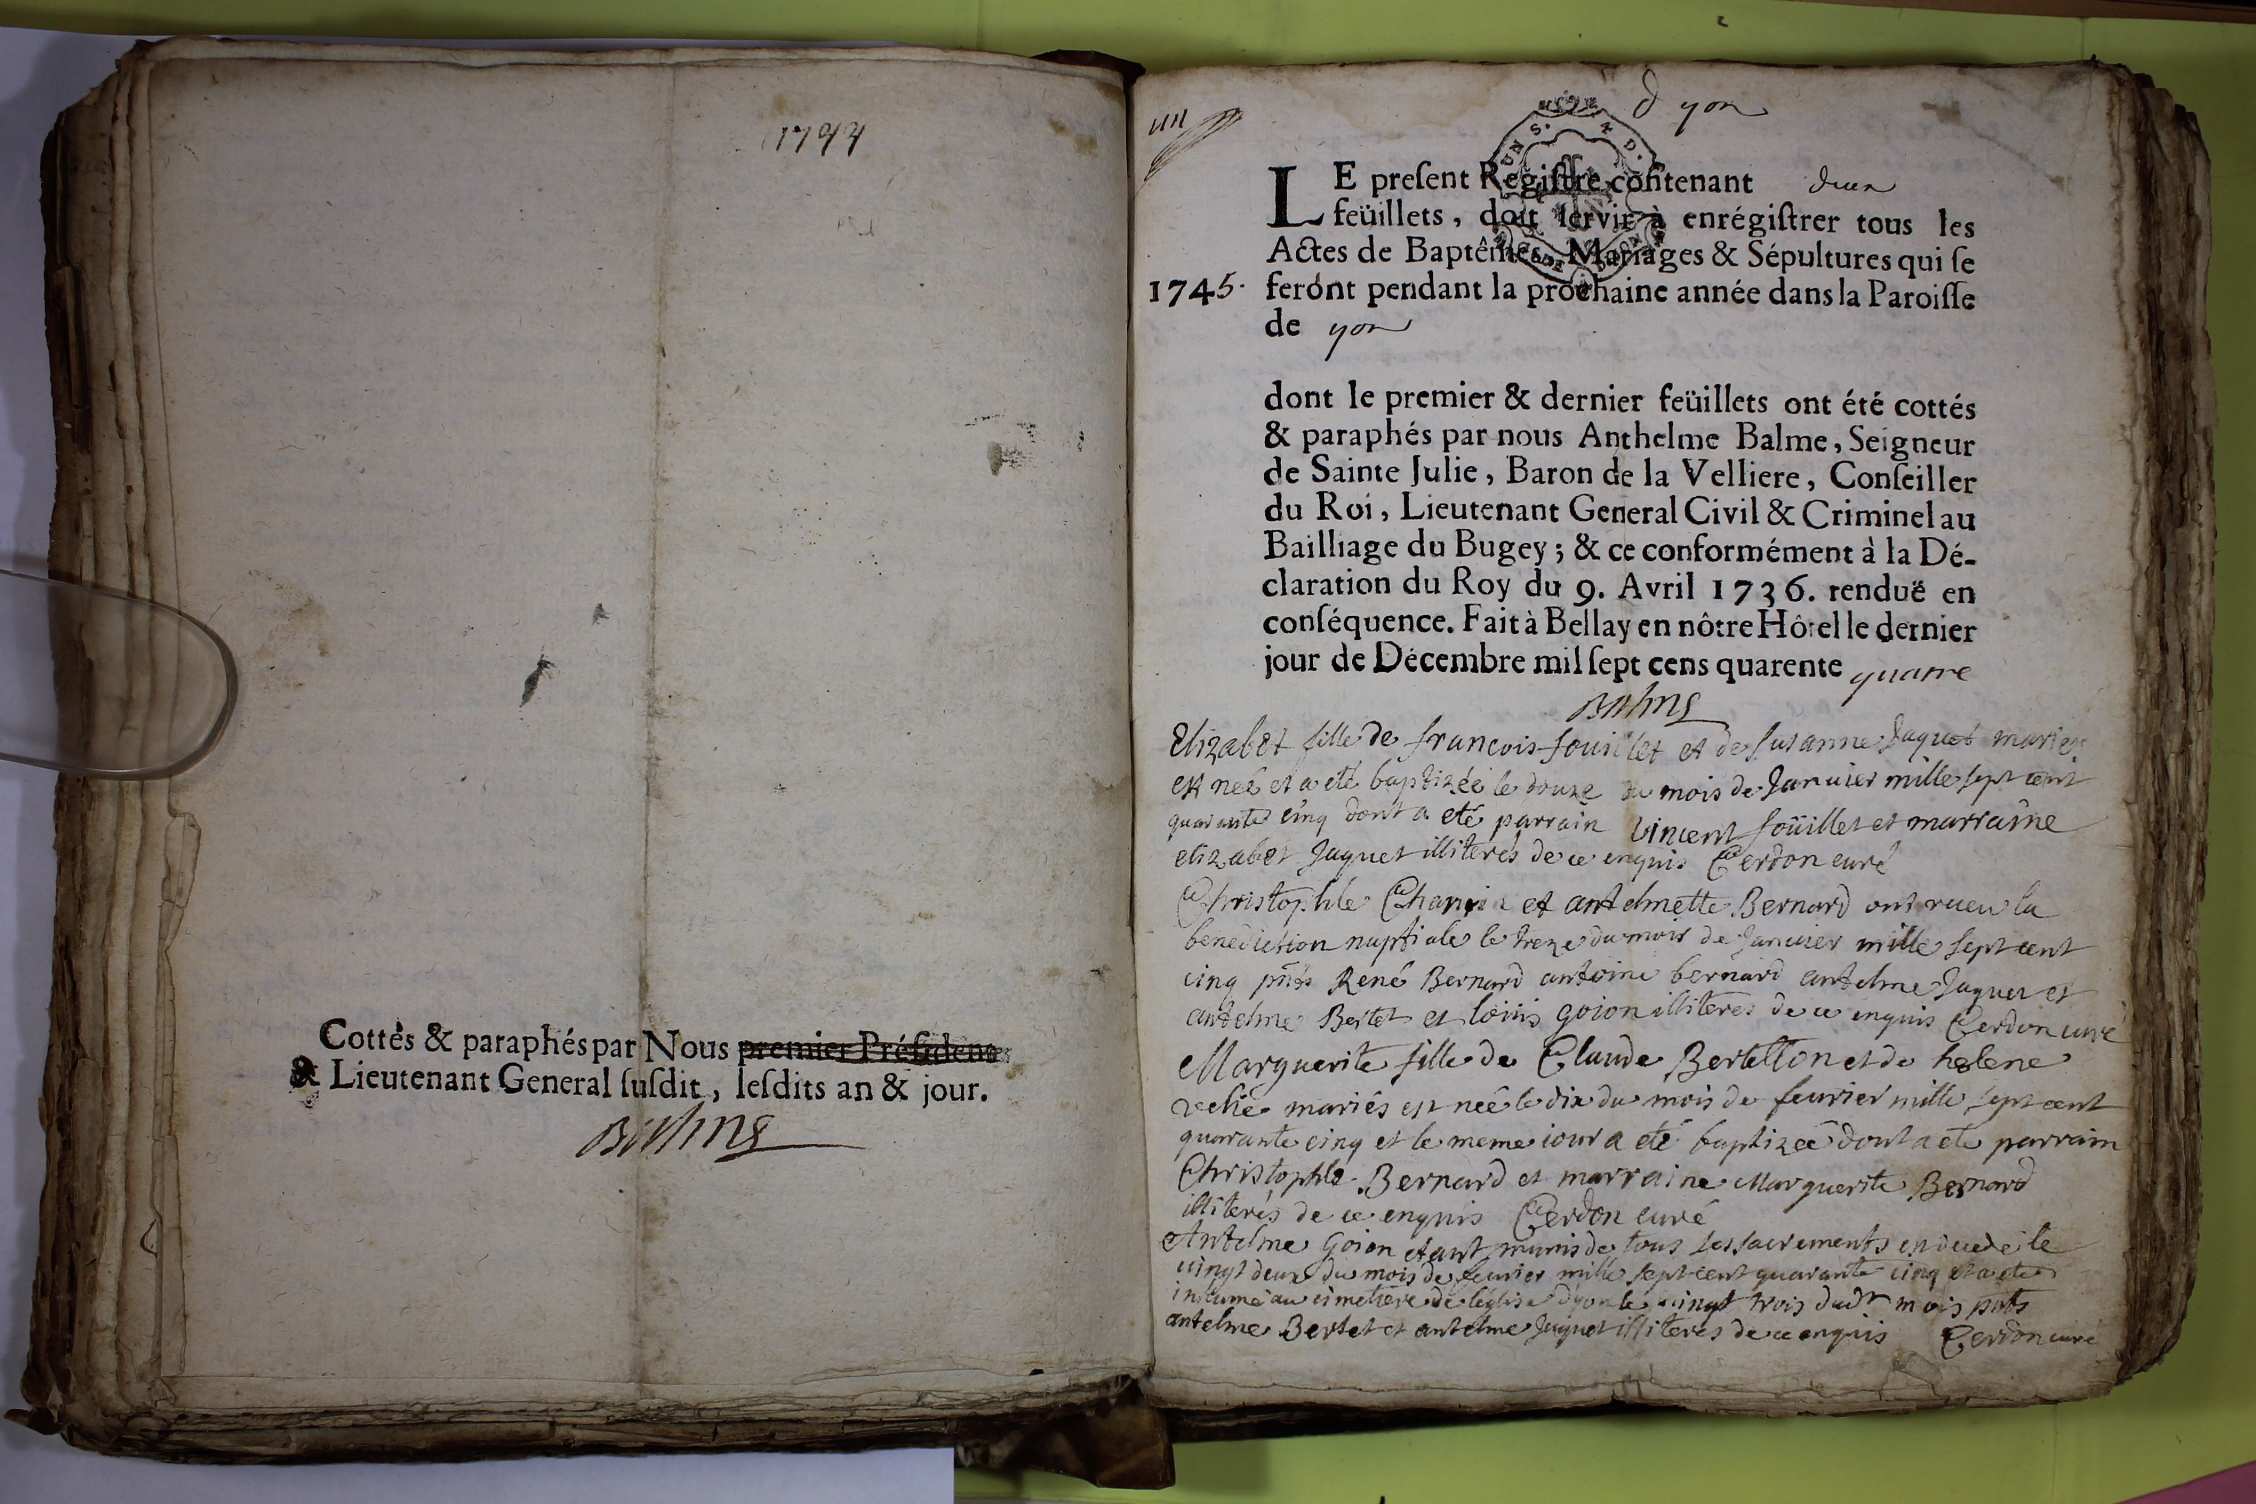 1744
Cottés & paraphés par Nous premier Présidens
& Lieutenant General susdit, lesdits an & jour.
Balme
un
d yon
UN S. 2 D.
LE present Registre contenant deux
feüillets, doit servir à enrégistrer tous les
Actes de Baptêmes, Mariages & Sépultures qui se
1745. feront pendant la prochaine année dans la Paroisse
de yon
dont le premier & dernier feüillets ont été cottés
& paraphés par nous Anthelme Balme, Seigneur
de Sainte Julie, Baron de la Velliere, Conseiller
du Roi, Lieutenant General Civil & Criminel au
Bailliage du Bugey; & ce conformément à la Dé-
claration du Roy du 9. Avril 1736. renduë en
conséquence. Fait à Bellay en nôtre Hôtel le dernier
jour de Décembre mil sept cens quarente quatre
Balme
Elizabet fille de francois fouillet et de susanne Jaquet mariés
est neé et a eté baptizeé le douze du mois de Januier mille sept cent
quarante cinq dont a eté parrain vincent foüillet et marraine
elizabet Jaquet illiterés de ce enquis Cerdon curé
Christophle et antelmette Bernard ont receu la
benediction nuptiale le treze du mois de Januier mille sept cent
cinq pnts René Bernard antoine bernard antelme Jaquet et
antelme Bertet et loüis goion illiteres de ce enquis Cerdon curé
Marguerite fille de Claude Bertellon et de helene
mariés est neé le dix du mois de feurier mille sept cent
quarante cinq et le meme iour a eté baptizeé dont a ete parrain
Christophle Bernard et marraine Marguerite Bernard
illiterés de ce enquis Cerdon curé
Antelme Goion etant munis de tous les sacrements est decedé le
uingt deux du mois de feurier mille sept cent quarante cinq et a ete
inhumé au cimetiere de leglise dyon le uingt trois dudt mois pnts
antelme Bertet et antelme Jaquet illiteres de ce enquis Cerdon curé